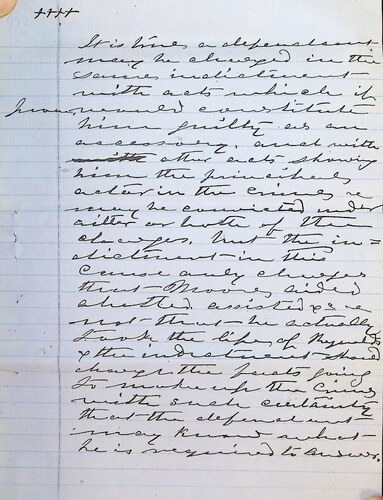 ++++
It is true a defendant
may be charged in the
same indictment
with acts which if
proven, would constitute
him guilty as an
accessory, and with
with other acts showing
him the principal
actor in the crime &
may be convicted under
either or both of the
charges, but the in=
dictment in this
cause only charges
that Moore aided
abetted assisted &c &
not that he actually
took the life of Reynolds
& the indictment should
charge the facts going
to make up the crime
with such certainty
that the defendant
may know what
he is required to answer.